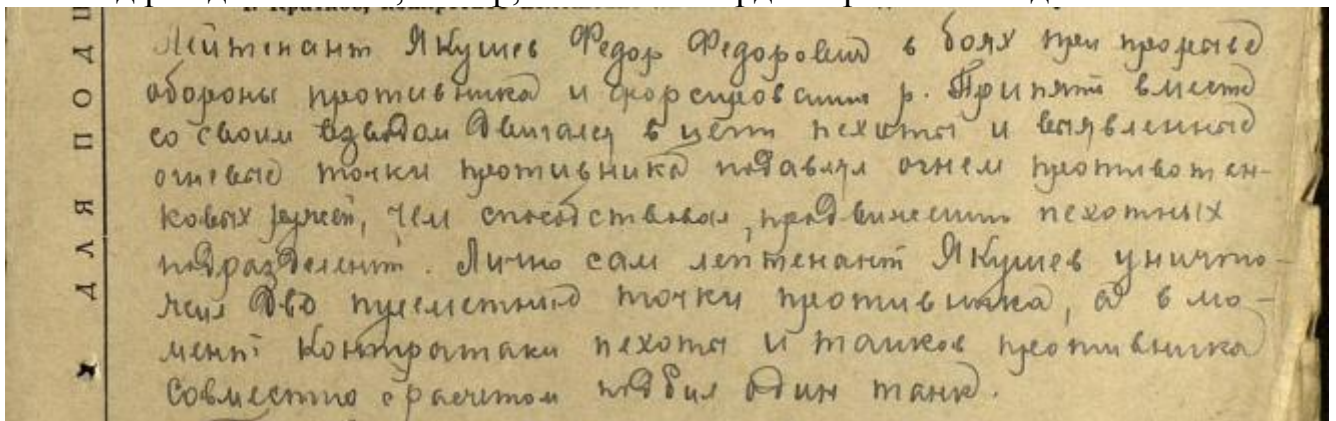 1. Краткое, конкретное изложение
Лейтенант Якушев Федор Федорович в боях при прорыве
обороны противника и форсировании р. Припять вместе
со своим взводом двигался в цепи пехоты и выявленные
огневые точки противника подавлял огнем противотан-
ковых ружей, чем способствовал продвижению пехотных
подразделений. Лично сам лейтенант Якушев уничто-
жил две пулеметные точки противника, а в мо-
мент контратаки пехоты и танков противника
совместно с расчетом подбил один танк.
ДЛЯ ПОДШ